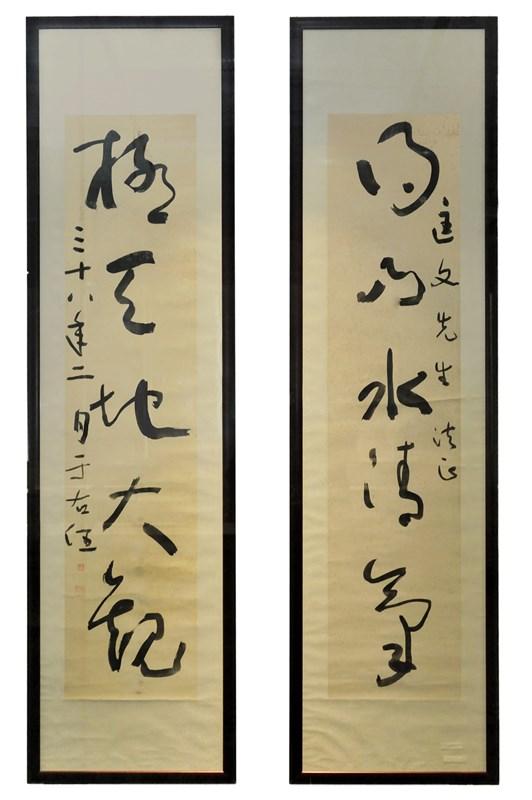 匡文先生 法正
得山水清氣
極天地大觀
三十八年二月 于右任